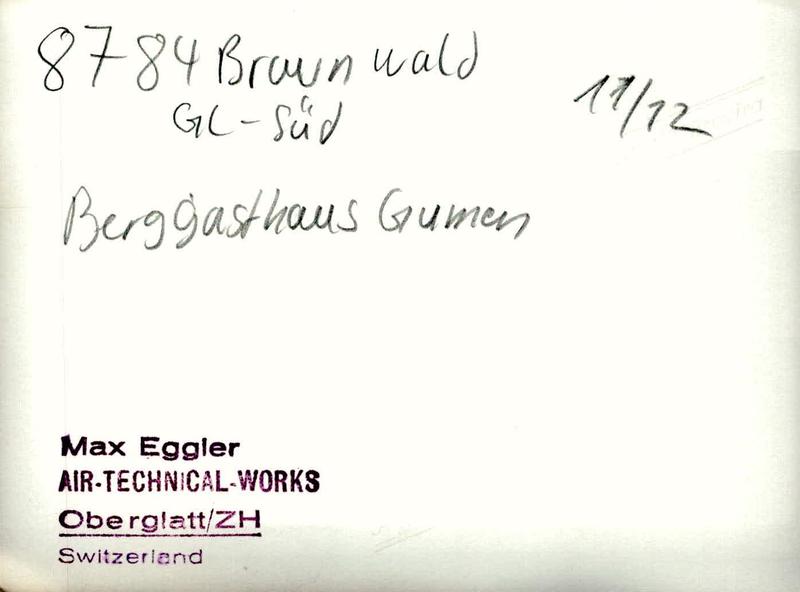 8784 Braunwald
GL-Süd
11/12
Berggasthaus Gumen
Max Eggler
AIR-TECHNICAL-WORKS
Oberglatt/ZH
Switzerland